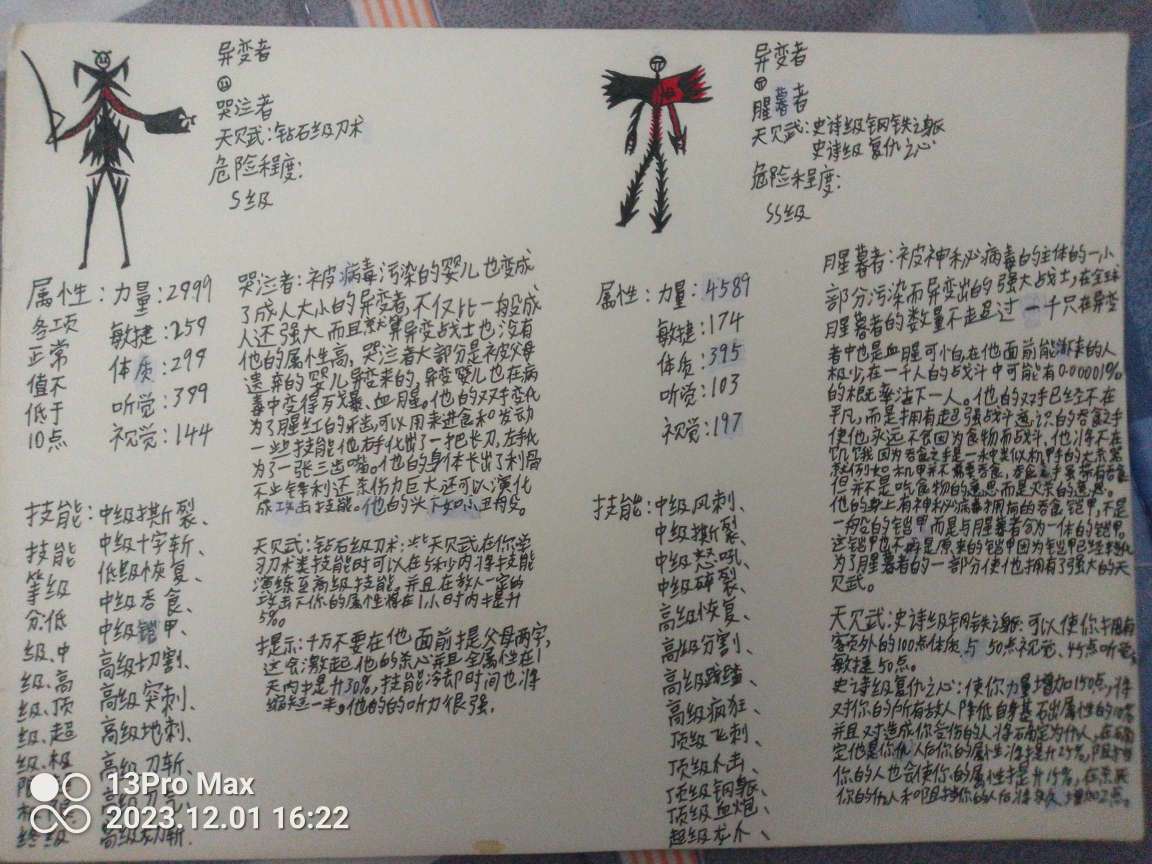 异变者
哭泣者
天贝武:钻石级刀术
危险程度:
S级
属性:力量:2999
各项 敏捷:259
正常 体质:299
值不 听觉:399
低于 视觉:144
10点
哭泣者:被病毒污染的婴儿也变成
了成人大小的异变者,不仅比一般成
人还强大,而且就算异变战士也没有
他的属性高,哭泣者大部分是被父母
遗弃的婴儿异变来的,异变婴儿也在病
毒中变得万残暴、血腥。他的双手变化
为了腥红的 ,可以用来进食和发动
一些技能他右手化出了一把长刀,左手化
为了一张三齿嘴。他的身体长出了利骨
不止锋利还杀伤力巨大还可以演化
成攻击技能。他的头下如小丑般。
天贝武:钻石级刀术:此天贝武在你学
习刀术类技能时可以在5秒内将技能
演练至高级技能,并且在敌人一定的
攻击下你的属性将在1小时内提升
5%。
提示:千万不要在他面前提父母两字,
这会激起他的杀心并且全属性在1
天内提升30%,技能冷却时间也将
缩短一半。他的的听力很强。
技能:中级撕裂、
技能 中级十字斩、
等级 低级恢复、
分:低 中级吞食、
级、中 中级铠甲、
级、高 高级切割、
级、顶 高级突刺、
级、超 高级地刺、
级、极 高级刀斩、
终级 高级劝斩.
异变者
腥暮者
天贝武:史诗级钢铁之躯
史诗级复仇之心
危险程度:
SS级
属性:力量:4589
敏捷:174
体质:395
听觉:103
视觉:197
腥暮者:被神秘病毒的主体的一小
部分污染而异变出的强大战士,在全球
腥暮者的数量不超过一千只在异变
者中也是血腥可怕,在他面前能活下来的人
极少,在一千人的战斗中可能有0.00001%
的概率活下一人。他的双手已经不在
平凡,而是拥有超强战斗意识的吞食之手
使他永远不会因为食物而战斗,他将不在
饥饿因为吞食之手是一种类似机甲手的
但并不是吃食物的意思而是灭杀的意思。
他的身上有神秘病毒拥有的吞食铠甲,不是
一般的铠甲而是与腥暮者合为一体的铠甲。
这铠甲也不再是原来的铠甲因为铠甲已经转化
为了腥暮者的一部分使他拥有了强大的天
贝武。
天贝武:史诗级钢铁之躯:可以使你拥有
额外的100点体质与50点视觉、45点听觉、
敏捷50点。
史诗级复仇之心:使你力量增加150点,将
对你的所有敌人降低自身基础属性的10%
并且对造成你受伤的人将确定为仇人,在确
定他是你仇人后你的属性将提升25%,阻挡
你的人也会使你的属性提升15%,在杀死
你的仇人和阻挡你的人后将永久增加2点。
技能:中级风刺、
中级撕裂、
中级怒吼、
中级碎裂、
高级恢复、
高级分割、
高级践踏、
高级疯狂、
顶级飞刺、
顶级 击、
顶级钢躯、
顶级血炮、
超级
13Pro Max
2023.12.01 16:22